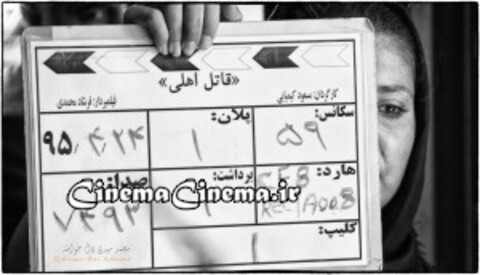 «قاتل اهلی»
کارگردان: مسعود کیمیایی
فیلمبردار: فرشاد محمدی
سکانس: ۵۹
پلان: ۱
۹۵/۴/۲۴
هارد:
برداشت:
صدا:
۷۴۹۳
CinemaCinema.ir
کلیپ: ۱